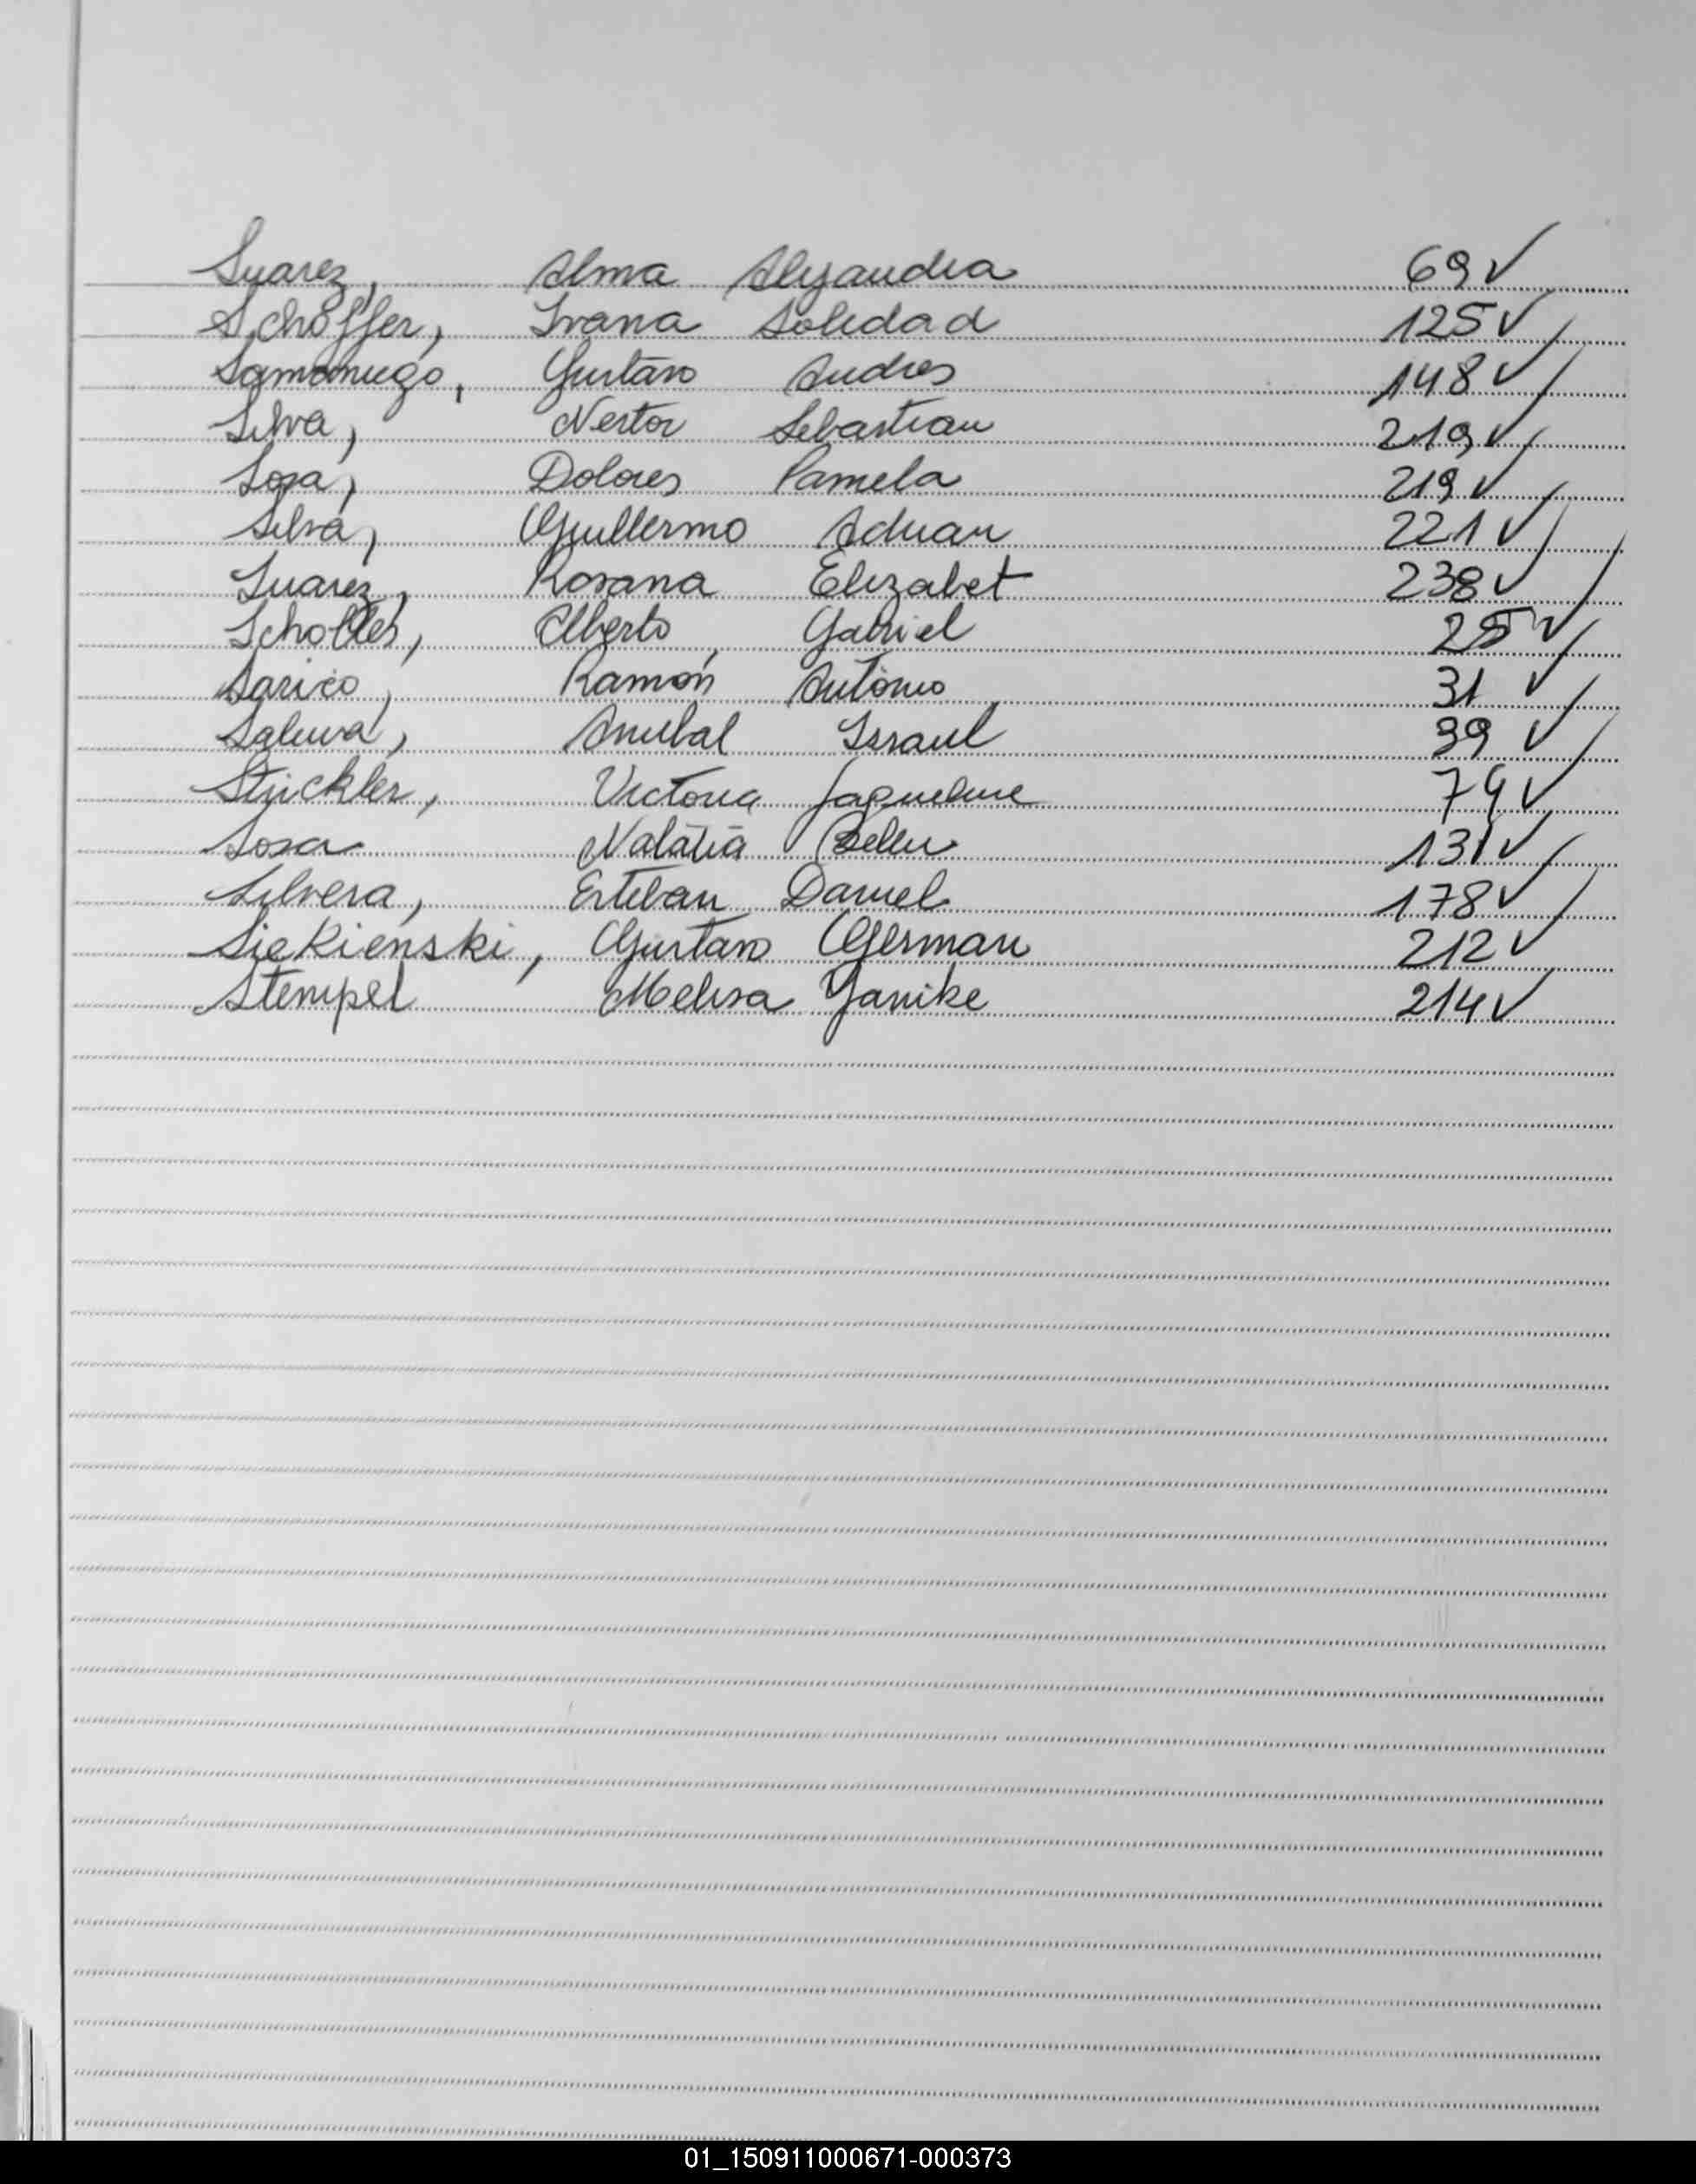 Suarez, Alma Alejandra 69 ✓
Schöffer, Ivana Soledad 125 ✓
Samaniego, Gustavo Andres 148 ✓
Silva, Nestor Sebastian 219 ✓
Sosa, Dolores Pamela 219 ✓
Silva, Guillermo Adrian 221 ✓
Suarez, Rosana Elizabet 238 ✓
Alberto Gabriel 25 ✓
Ramón Antonio 31 ✓
Anibal Israel 39 ✓
Stückler, Victoria Jaqueline 74 ✓
Sosa Natalia Belen 131 ✓
Silvera, Esteban Daniel 178 ✓
Siekienski, Gustavo German 212 ✓
Stempel Melisa Yanike 214 ✓
01_150911000671-000373